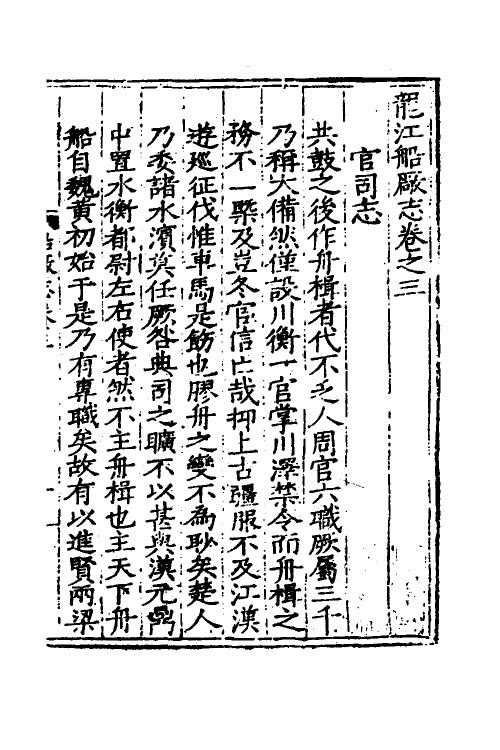 龍江船廠志卷之三
官司志
共鼓之後作舟楫者代不乏人周官六職厥屬三千
乃稱大備然僅設川衡一官掌川澤禁令而舟楫之
務不一槩及豈冬官信亡哉抑上古疆服不及江漢
遊廵征伐惟車馬是飭也膠舟之變不為耿矣楚人
乃委諸水濱莫任厥咎典司之曠不以甚與漢元鼎
中置水衡都尉左右使者然不主舟楫也主天下舟
船自魏黃初始于是乃有專職矣故有以進賢兩梁